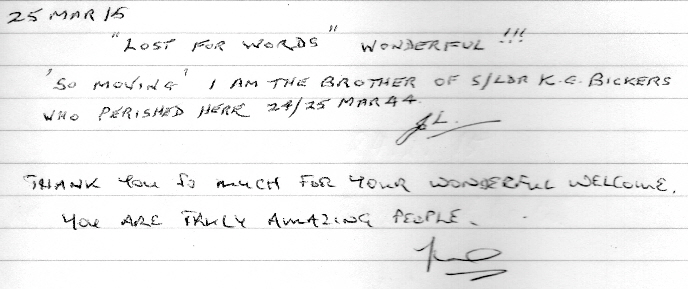 25 MAR 15
"LOST FOR WORDS" WONDERFUL !!!
'SO MOVING' I AM THE BROTHER OF S/LDR K.G. BICKERS
WHO PERISHED HERE 24/25 MAR 44.
THANK YOU SO MUCH FOR YOUR WONDERFUL WELCOME.
YOU ARE TRULY AMAZING PEOPLE.